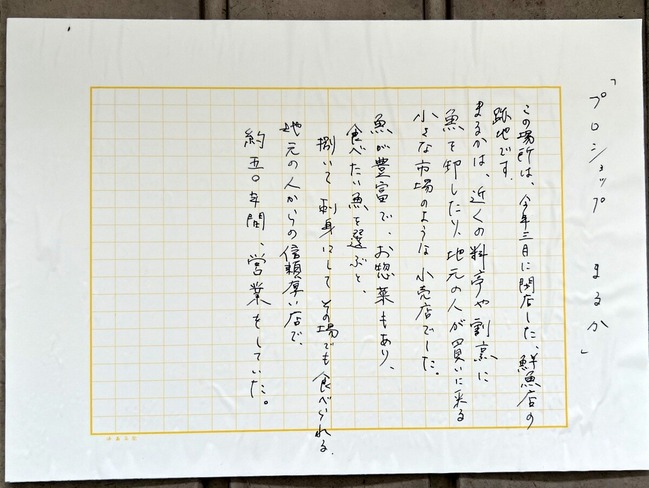 「プロショップ まるか」
この場所は、今年三月に閉店した、鮮魚店の
跡地です。
まるかは、近くの料亭や割烹に
魚を卸したり、地元の人が買いに来る
小さな市場のような小売店でした。
魚が豊富で、お惣菜もあり、
食べたい魚を選ぶと、
捌いて刺身にしてその場でも食べられる。
地元の人からの信頼厚い店で、
約五〇年間、営業をしていた。